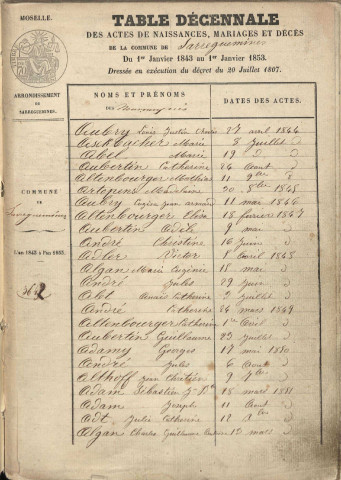 MOSELLE.
TABLE DÉCENNALE
DES ACTES DE NAISSANCES, MARIAGES ET DÉCÈS
DE LA COMMUNE DE Sarreguemines
Du 1er Janvier 1843 au 1er Janvier 1853.
Dressée en exécution du décret du 20 Juillet 1807.
ARRONDISSEMENT
DE
SARREGUEMINES.
COMMUNE
DE
Sarreguemines
L'an 1843 à l'an 1853.
NOMS ET PRÉNOMS
DES
DATES DES ACTES.
Aubry Louis Justin 27 avril 1844
Marie 8 Juillet
Abel Marie 19
Aubertin Catherine 24 Aout
Altenbourger Mathias 11 9bre
Madeleine 20 8bre 1845
Aubry Eugène Jean armand 11 mai 1846
Altenbourger Elisa 18 fevrier 1847
Aubertin Adèle 9 mai
André Christine 16 Juin
Adler Victor 1 Avril 1848
Algan Marie Eugénie 18 mai
André Jules 29 Juin
Abt Catherine 2 Juillet
André Catherine 24 mars 1849
Altenbourger Catherine 1er Avril
Aubertin Guillaume 23 Juillet
Adamy Georges 17 mai 1850
André Jules 6 Aout
Althoff Jean Chrétien 9 7bre
Adam Sébastien 18 mars 1851
Adam Joseph 11 Aout
Adt Julie Catherine 12
Algan Charles Guillaume 13 mars